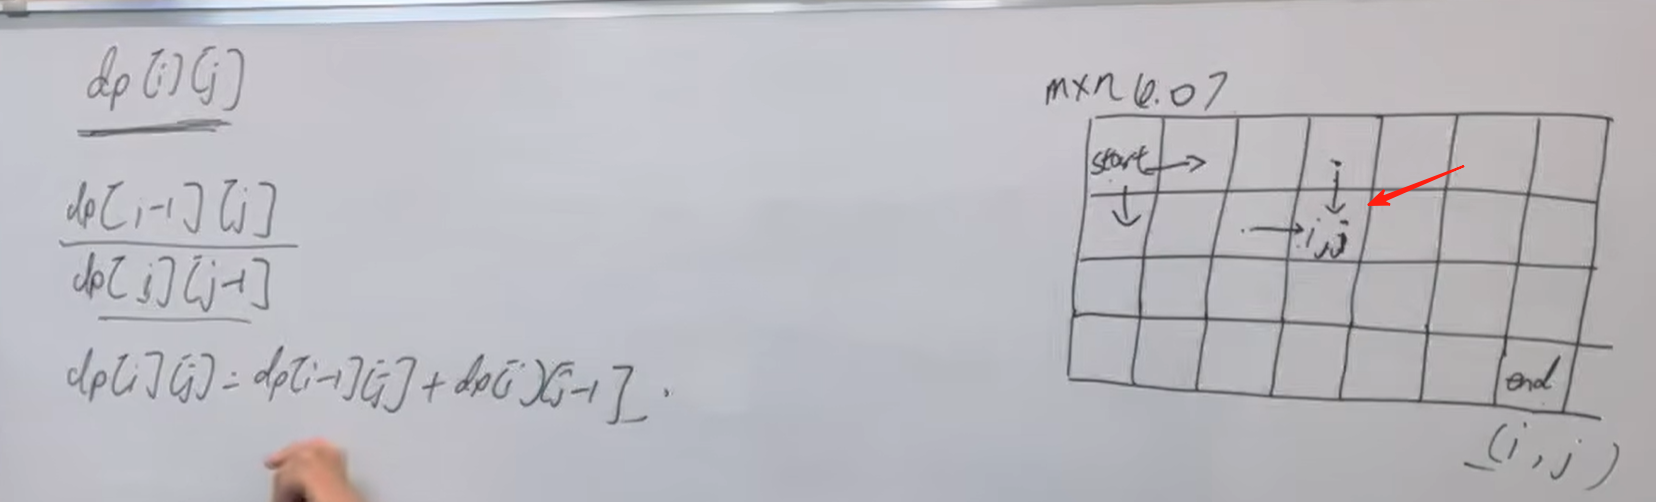 dp[i][j]
dp[i-1][j]
dp[i][j-1]
dp[i][j]=dp[i-1][j]+dp[i][j-1].
m×n (0.0)
start
i,j
end
(i,j)